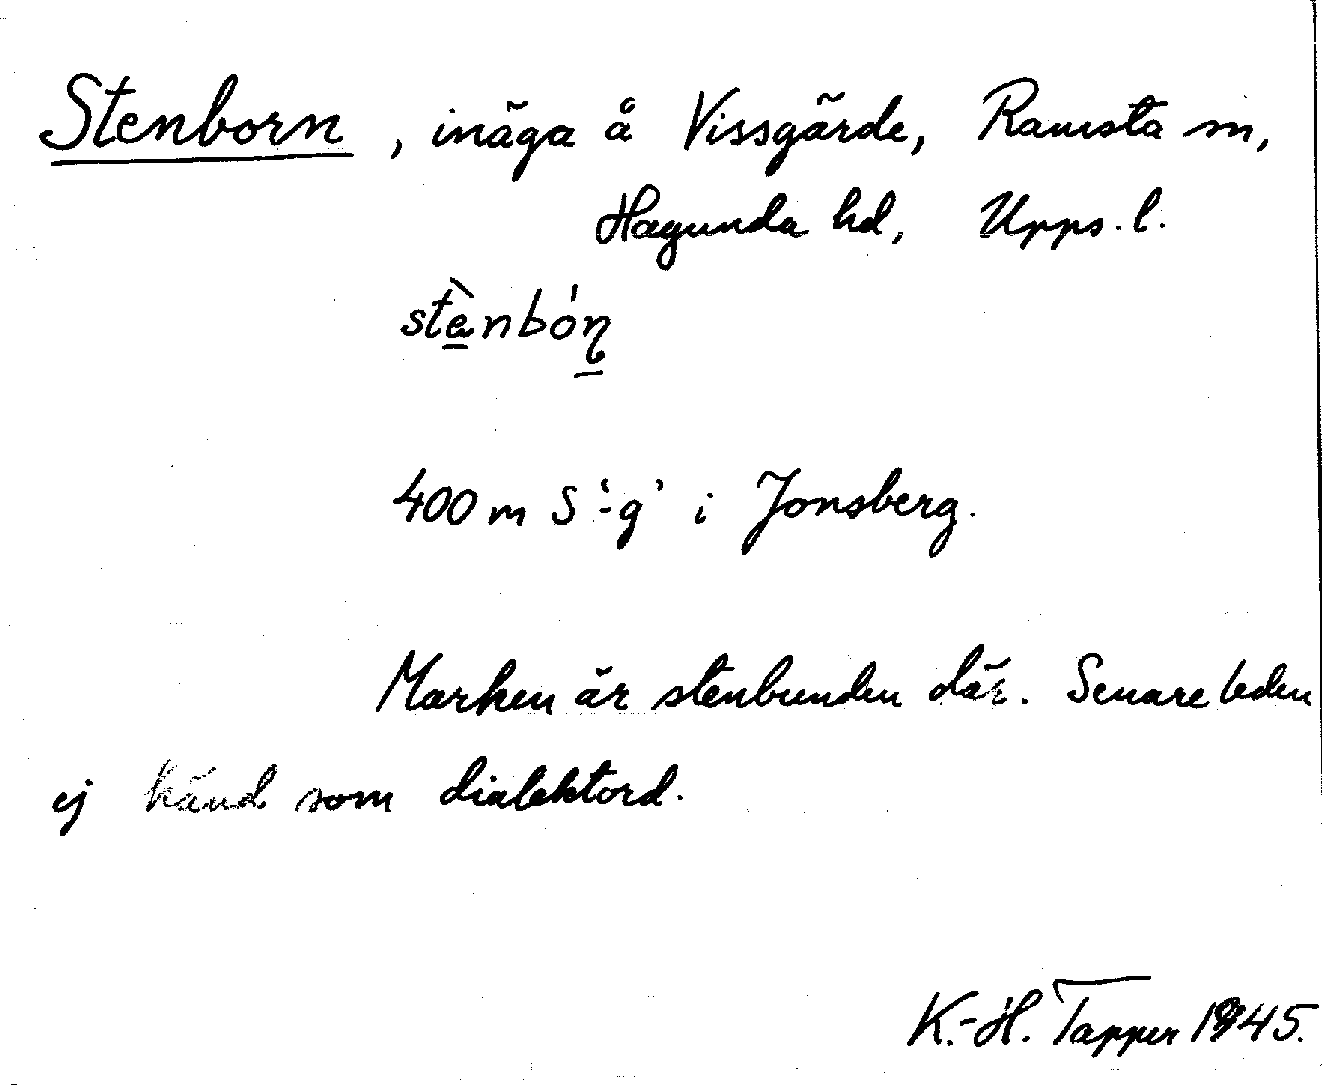 Stenborn, inäga å Vissgärde, Ramsta sn,
Hagunda hd, Upps. l.
stènbóṇ
400 m S '-g' i Jonsberg.
Marken är stenbunden där. Senare leden
ej känd som dialektord.
K.-H. Tapper 1945.